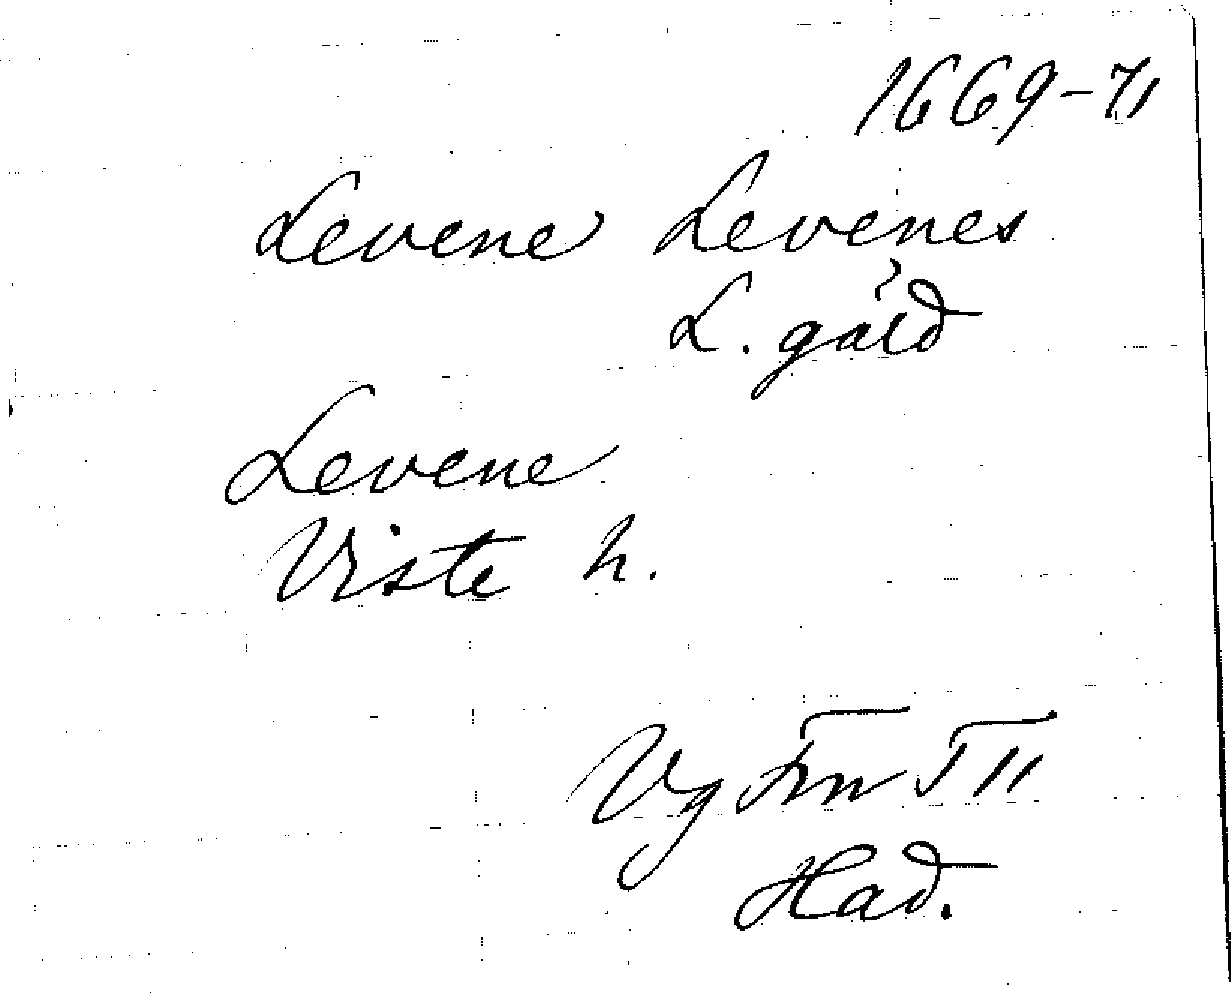 1669-71
Levene Levenes
L. gård
Levene
Viste h.
Vg Frn T 11
Had.